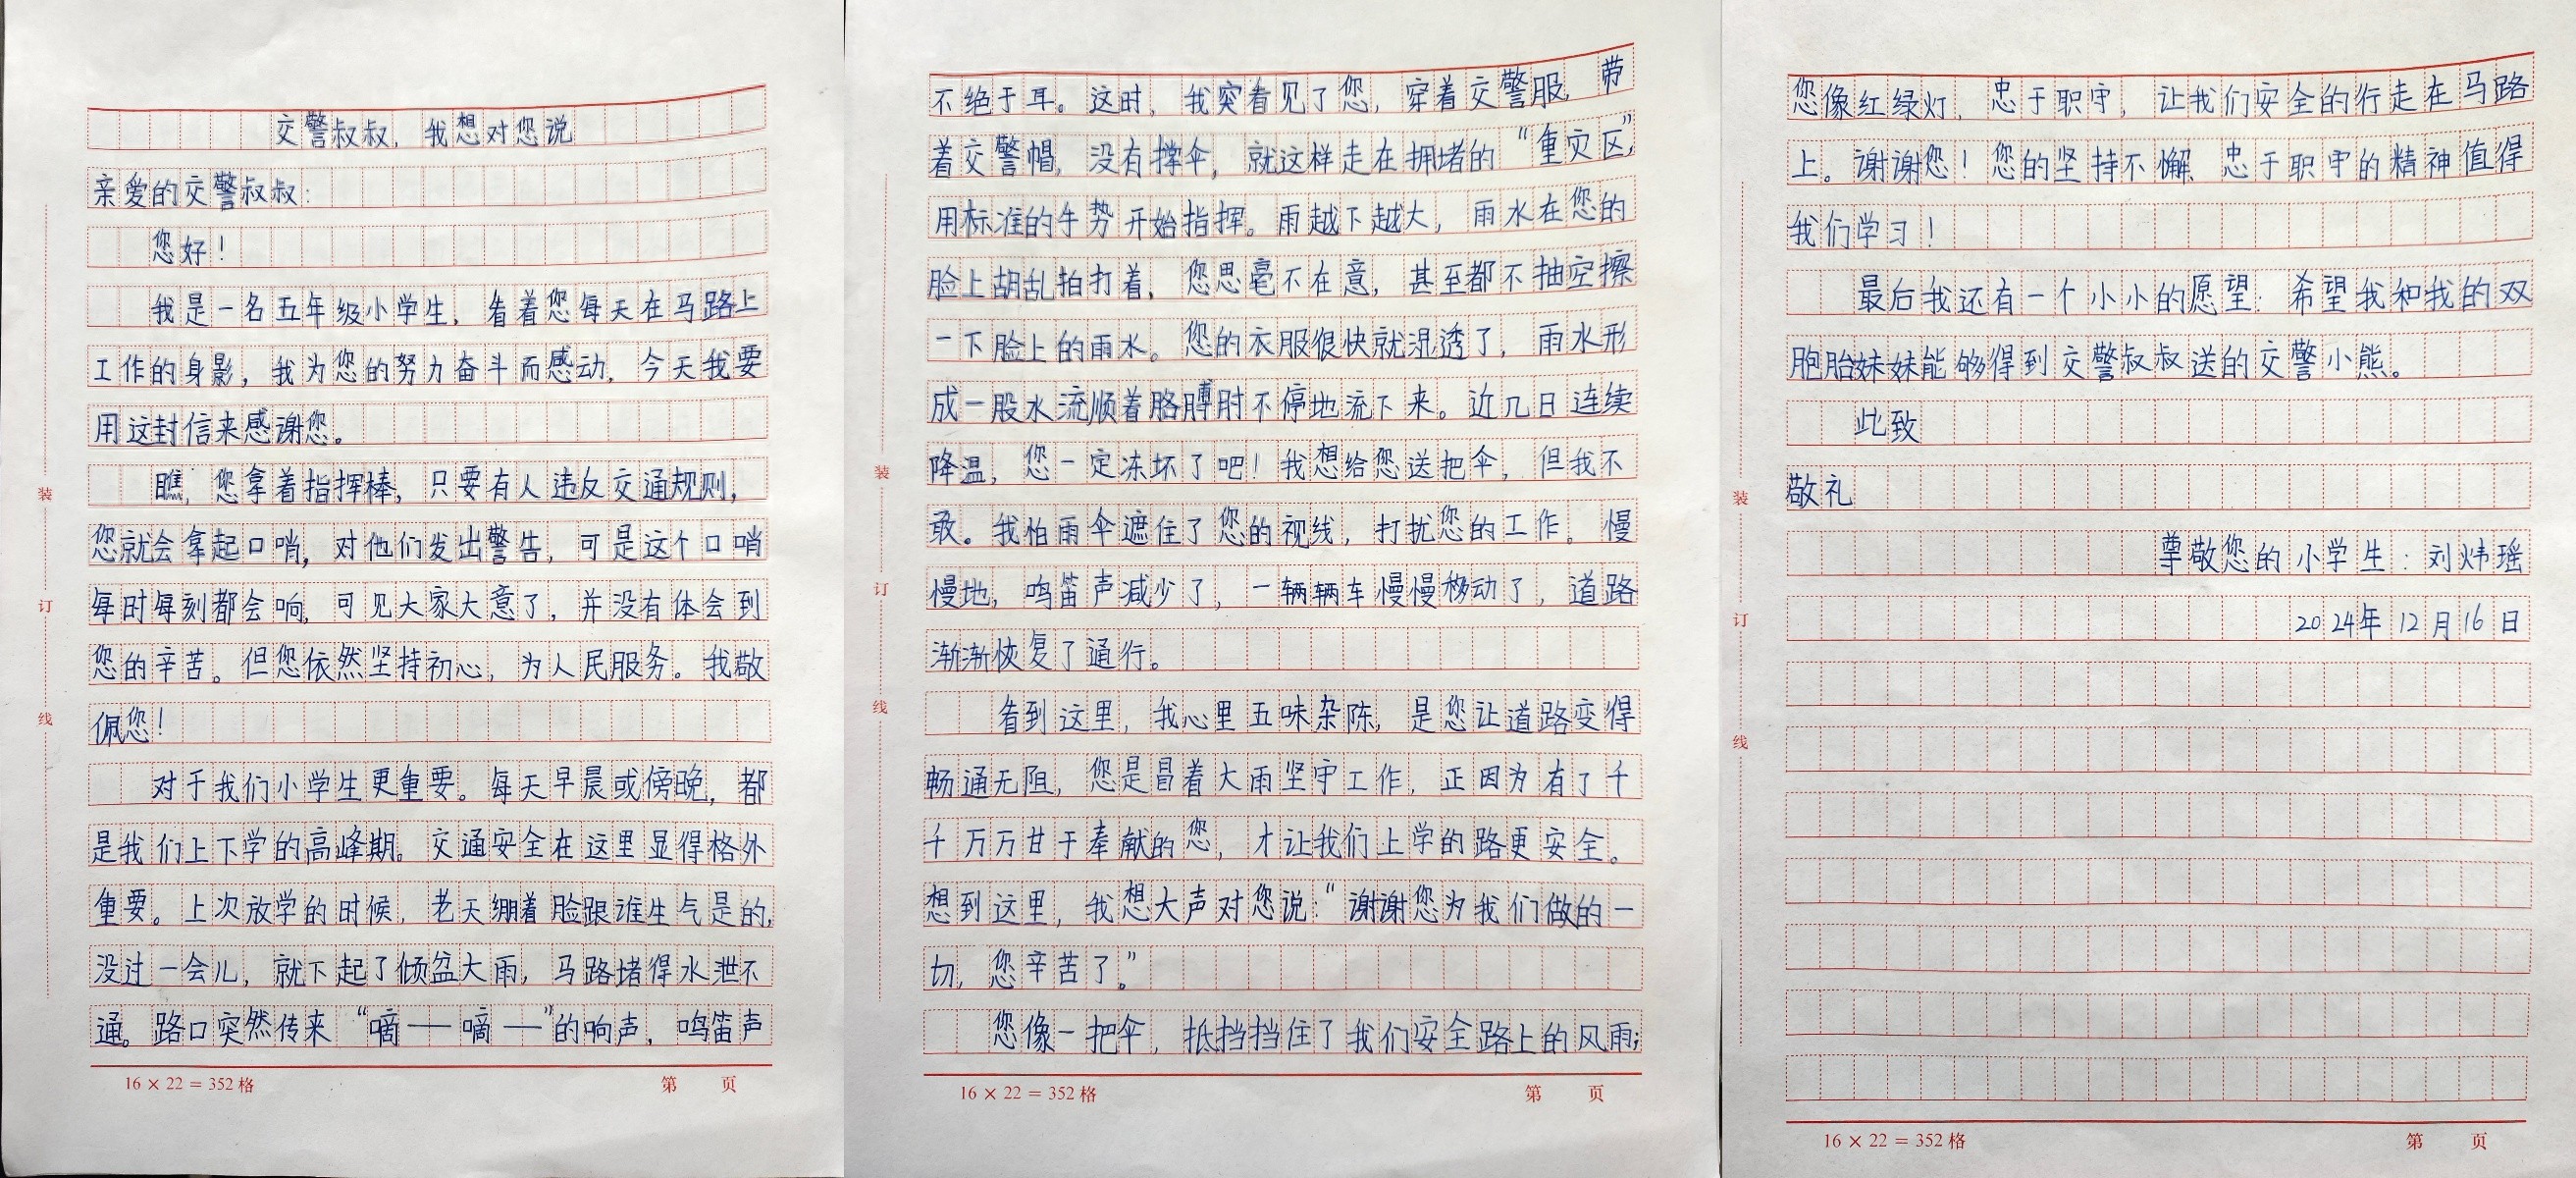 交警叔叔，我想对您说
亲爱的交警叔叔：
您好！
我是一名五年级小学生，看着您每天在马路上
工作的身影，我为您的努力奋斗而感动，今天我要
用这封信来感谢您。
瞧，您拿着指挥棒，只要有人违反交通规则，
您就会拿起口哨，对他们发出警告，可是这个口哨
每时每刻都会响，可见大家大意了，并没有体会到
您的辛苦。但您依然坚持初心，为人民服务。我敬
佩您！
对于我们小学生更重要。每天早晨或傍晚，都
是我们上下学的高峰期。交通安全在这里显得格外
重要。上次放学的时候，老天绷着脸跟谁生气是的，
没过一会儿，就下起了倾盆大雨，马路堵得水泄不
通。路口突然传来“嘀——嘀——”的响声，鸣笛声
16×22＝352格
第 页
装
订
线
不绝于耳。这时，我突看见了您，穿着交警服，带
着交警帽，没有撑伞，就这样走在拥堵的“重灾区”，
用标准的手势开始指挥。雨越下越大，雨水在您的
脸上胡乱拍打着，您思毫不在意，甚至都不抽空擦
一下脸上的雨水。您的衣服很快就湿透了，雨水形
成一股水流顺着胳膊肘不停地流下来。近几日连续
降温，您一定冻坏了吧！我想给您送把伞，但我不
敢。我怕雨伞遮住了您的视线，打扰您的工作。慢
慢地，鸣笛声减少了，一辆辆车慢慢移动了，道路
渐渐恢复了通行。
看到这里，我心里五味杂陈，是您让道路变得
畅通无阻，您是冒着大雨坚守工作，正因为有了千
千万万甘于奉献的您，才让我们上学的路更安全。
想到这里，我想大声对您说：“谢谢您为我们做的一
切，您辛苦了。”
您像一把伞，抵挡挡住了我们安全路上的风雨；
16×22＝352格
第 页
装
订
线
您像红绿灯，忠于职守，让我们安全的行走在马路
上。谢谢您！您的坚持不懈、忠于职守的精神值得
我们学习！
最后我还有一个小小的愿望：希望我和我的双
胞胎妹妹能够得到交警叔叔送的交警小熊。
此致
敬礼
尊敬您的小学生：刘炜瑶
2024年12月16日
16×22＝352格
第 页
装
订
线